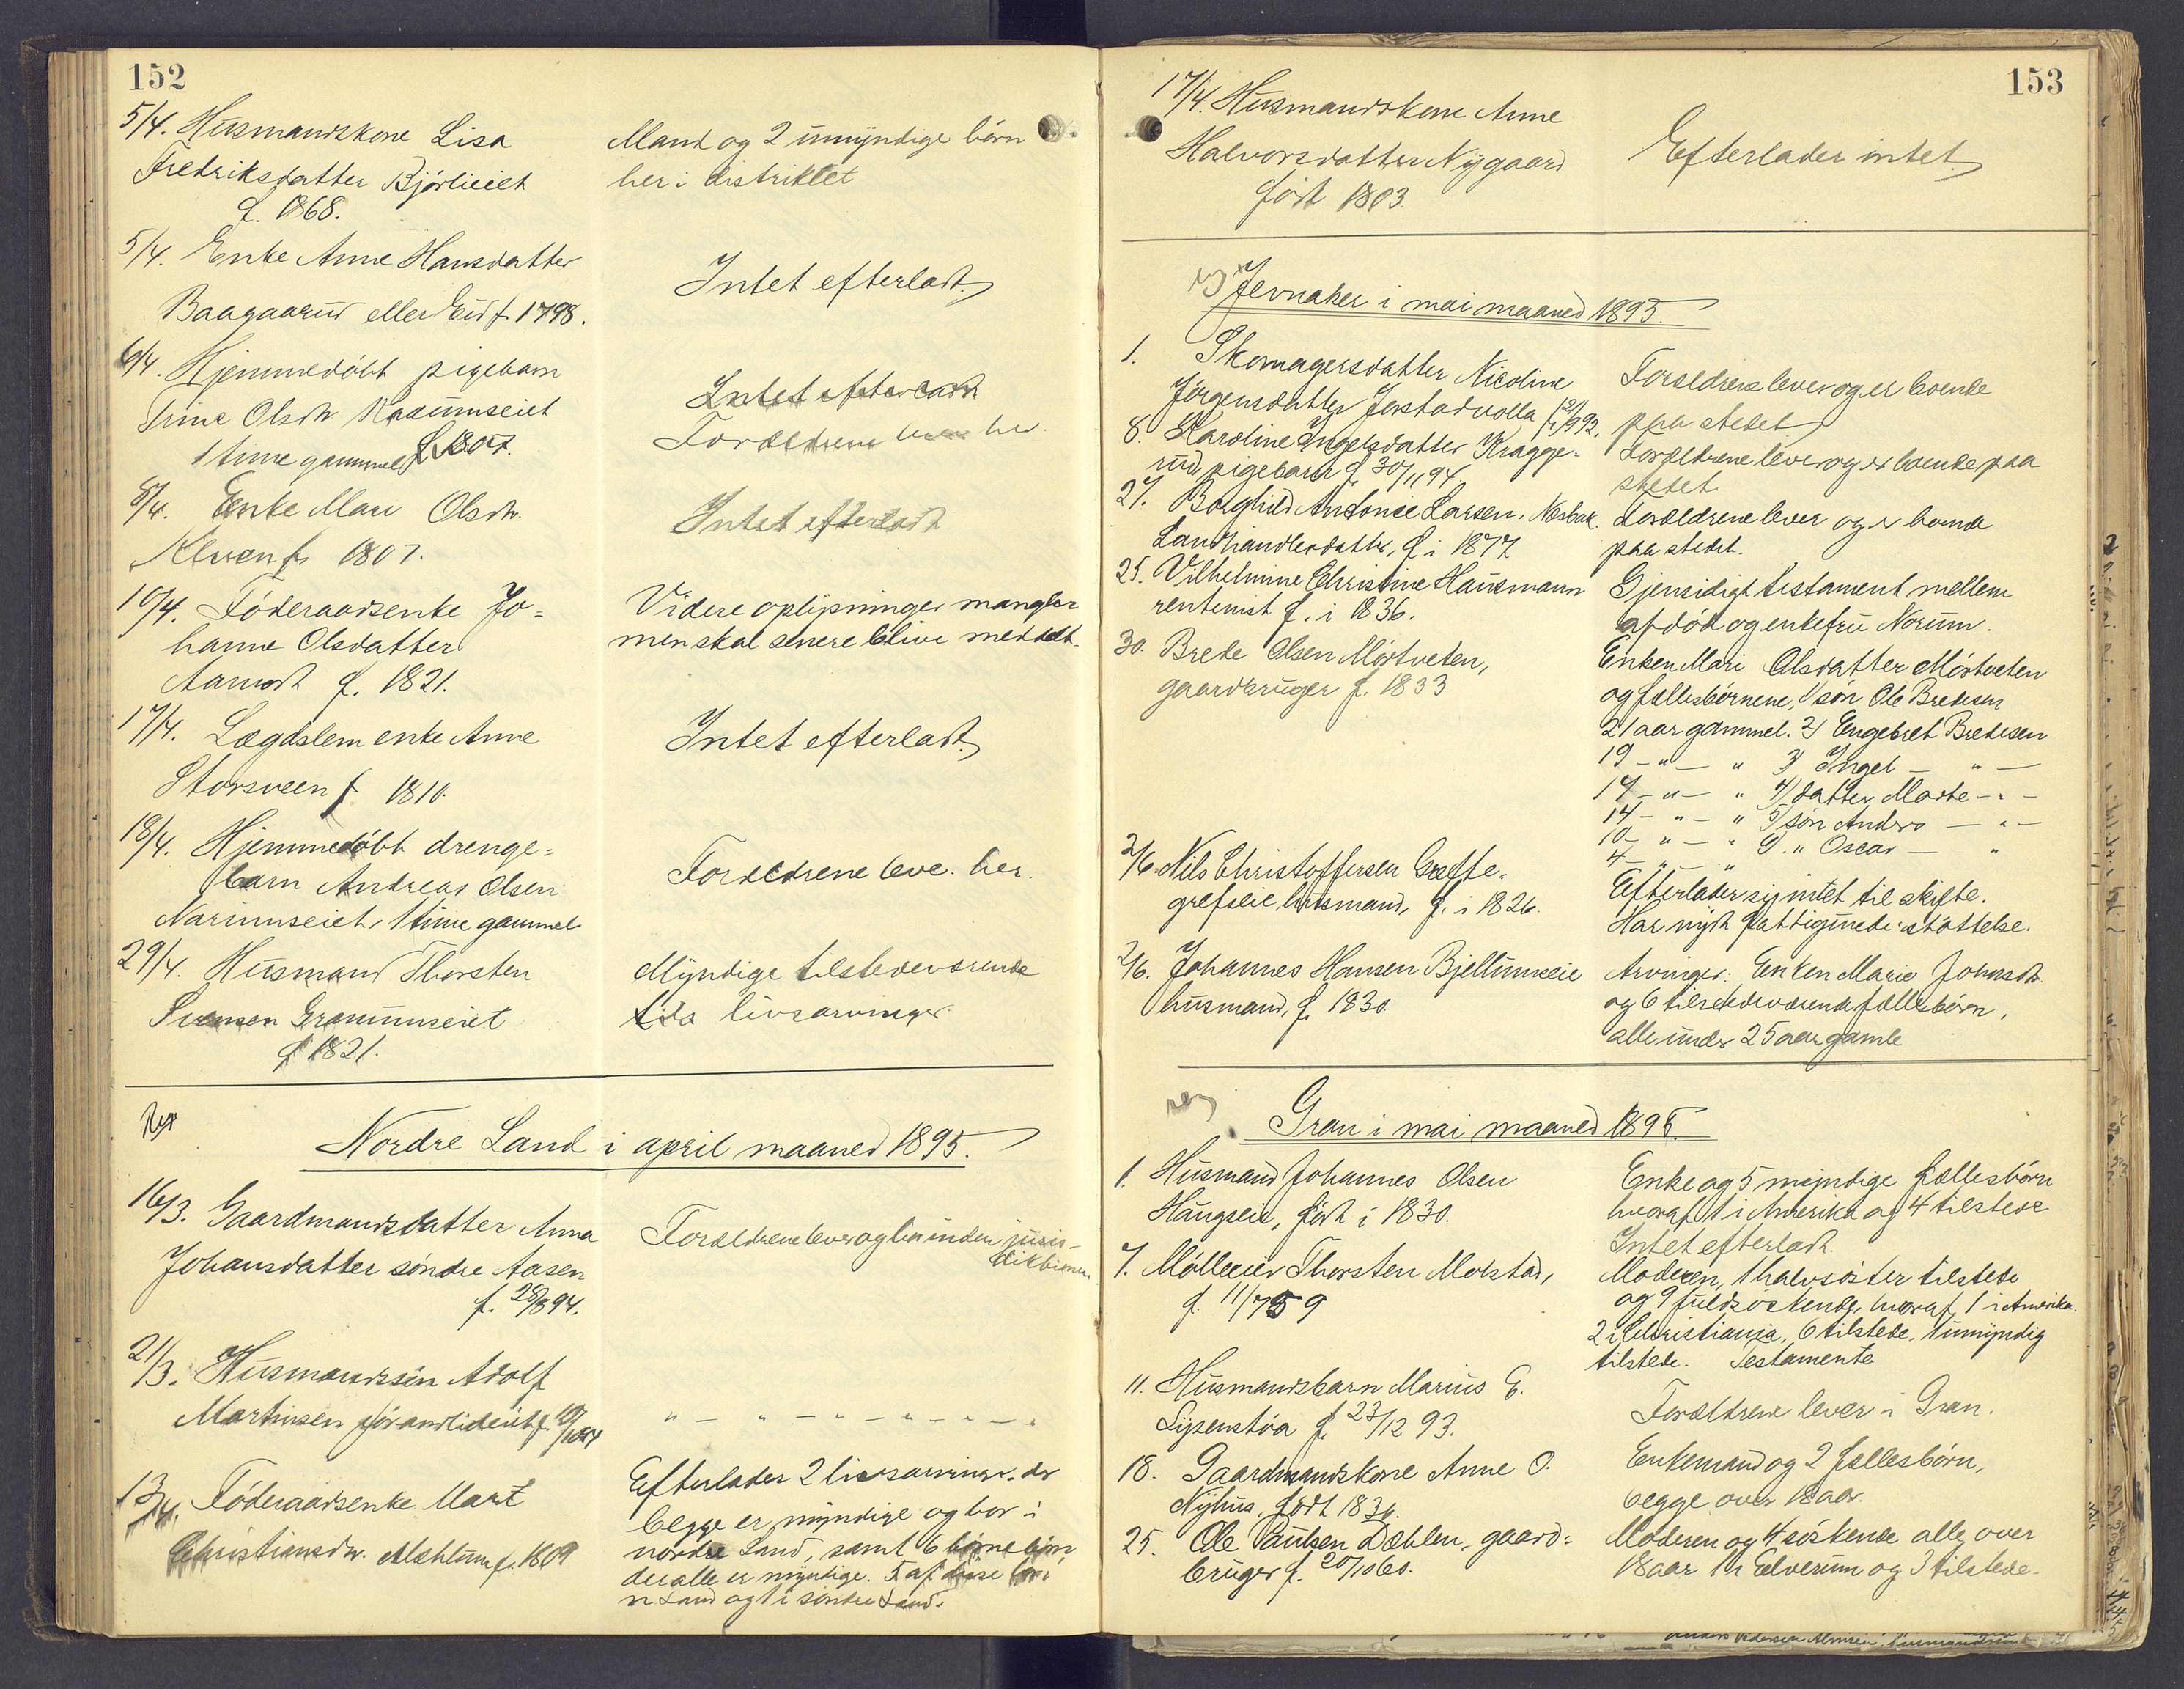 152
5/4. Husmandskone Lisa
Fredriksdatter Bjørlieiet
f. 1868.
Mand og 2 umyndige børn
her i distriktet
5/4. Enke Anne Hansdatter
Baagaarud eller Eid f. 1798.
Intet efterladt.
6/4. Hjemmedøbt pigebarn
Trine Olsdtr.
1 time gammel
Intet efterladt
Forældrene her.
8/4. Enke Mari Olsdtr.
Elven f. 1807.
Intet efterladt
10/4. Føderaadsenke Jo-
hanne Olsdatter
Aamodt f. 1821.
Videre oplysninger mangler
men skal senere blive meddelt.
17/4. Lægdslem enke Anne
Storsveen f. 1810.
Intet efterladt.
18/4. Hjemmedøbt drenge-
barn Andreas Olsen
Narumseiet, 1 time gammel
Forældrene leve. her.
29/4. Husmand Thorsten
Svensen Granumseiet
f 1821.
Myndige tilstedeværende
livsarvinger.
Nordre Land i april maaned 1895.
16/3. Gaardmandsdatter Anna
Johansdatter søndre Aasen
f. 28/8 94.
Forældrene lever og bor inden juris-
diktionen
21/3. Husmandssøn Adolf
Martinsen
" — " — " — " — " — "
13/4. Føderaadsenke Marit
Christiansdtr. Mæhlum f. 1809
Efterlader 2 livsarvinger. der
begge er myndige og bor i
nordre Land, samt 6 børnebørn
der alle er myndige. 5 af disse bor i
n Land og 1 i søndre Land.
153
17/4. Husmandskone Anne
Halvorsdatter Nygaard
født 1803.
Efterlader intet.
Jevnaker i mai maaned 1895.
1. Skomagersdatter Nicoline
Jørgensdatter Jorstadvolla
Forældrene lever og er boende
paa stedet
8. Karoline Ingelsdatter Kragge-
rud pigebarn f. 30/11 94
Forældrene lever og er boende paa
stedet.
27. Borghild Antonie Larsen, Næsbak.
Landhandlerdatter, f. i 1877
Forældrene lever og er boende
paa stedet.
25. Vilhelmine Christine Hausmann
rentenist f. i 1836.
Gjensidigt testament mellem
afdød og enkefru Norum.
30. Brede Olsen Mørtveten,
gaardbruger f. 1833
Enken Mari Olsdatter Mørtveten
og fællesbørnene, 1/ søn Ole Bredesen
21 aar gammel. 2/ Engebret Bredesen
19 — " — " 3/ Ingel — " —
17 — " — " 4/ datter Marte — " —
14 — " — " 5/ søn Anders — " —
10 — " — " 6/ " Oscar — "
4 — " — "
2/6. Nils Christoffersen Græfte-
grefseie, husmand, f. i 1826.
Efterlader sig intet til skifte.
Har nydt fattigunderstøttelse.
2/6. Johannes Hansen Bjellumseie
husmand, f. 1830.
Arvinger: Enken Marie Johnsdtr.
og 6 tilstedeværende fællesbørn,
alle under 25 aar gamle
Gran i mai maaned 1895.
1. Husmand Johannes Olsen
Haugseie, født i 1830.
Enke og 5 myndige fællesbørn
hvoraf 1 i Amerika og 4 tilstede
Intet efterladt.
7. Mølleeier Thorsten Molstad,
f. 11/7 59
Moderen, 1 halvsøster tilstede
og 9 fuldsøskende, hvoraf 1 i Amerika.
2 i Christiania, 6 tilstede, 1 umyndig
tilstede. Testamente
11. Husmandsbarn Marius E.
Lysenstøa f. 23/12 93.
Forældrene lever i Gran.
18. Gaardmandskone Anne O.
Nyhus, født 1836.
Enkemand og 2 fællesbørn,
begge over 18 aar.
25. Ole Paulsen Dæhlen, gaard-
bruger f. 20/10 60.
Moderen og 4 søskende alle over
18 aar 1 i Elverum og 3 tilstede.